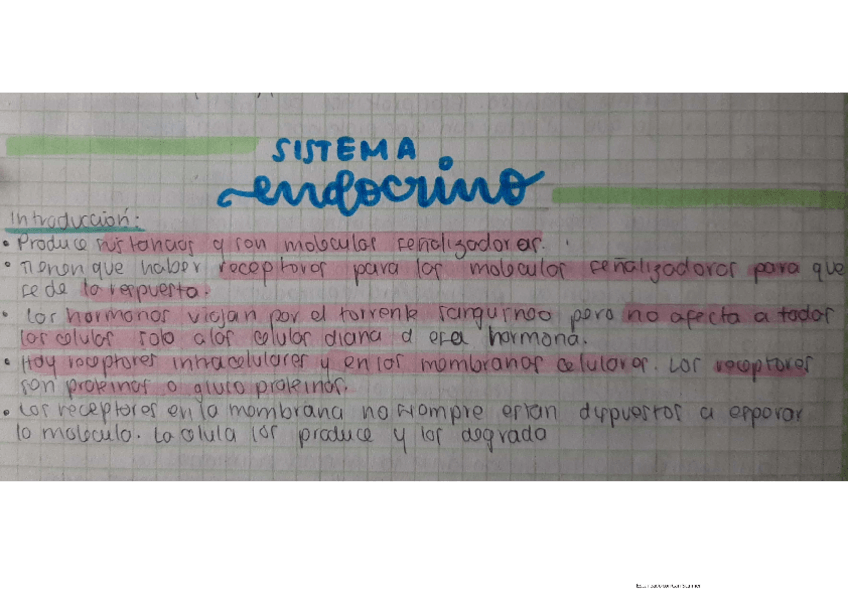 SISTEMA
endocrino
Introducción:
• Produce sustancias q son moleculas señalizadoras.
• Tienen que haber receptores para las moleculas señalizadoras para que
se de la respuesta.
• Las hormonas viajan por el torrente sanguineo pero no afecta a todas
las celulas solo a las celulas diana d esa hormona.
• Hay receptores intracelulares y en las membranas celulares. Los receptores
son proteinas o gluco proteinas.
• Los receptores en la membrana no siempre estan dispuestos a esperar
la molecula. La celula los produce y los degrada